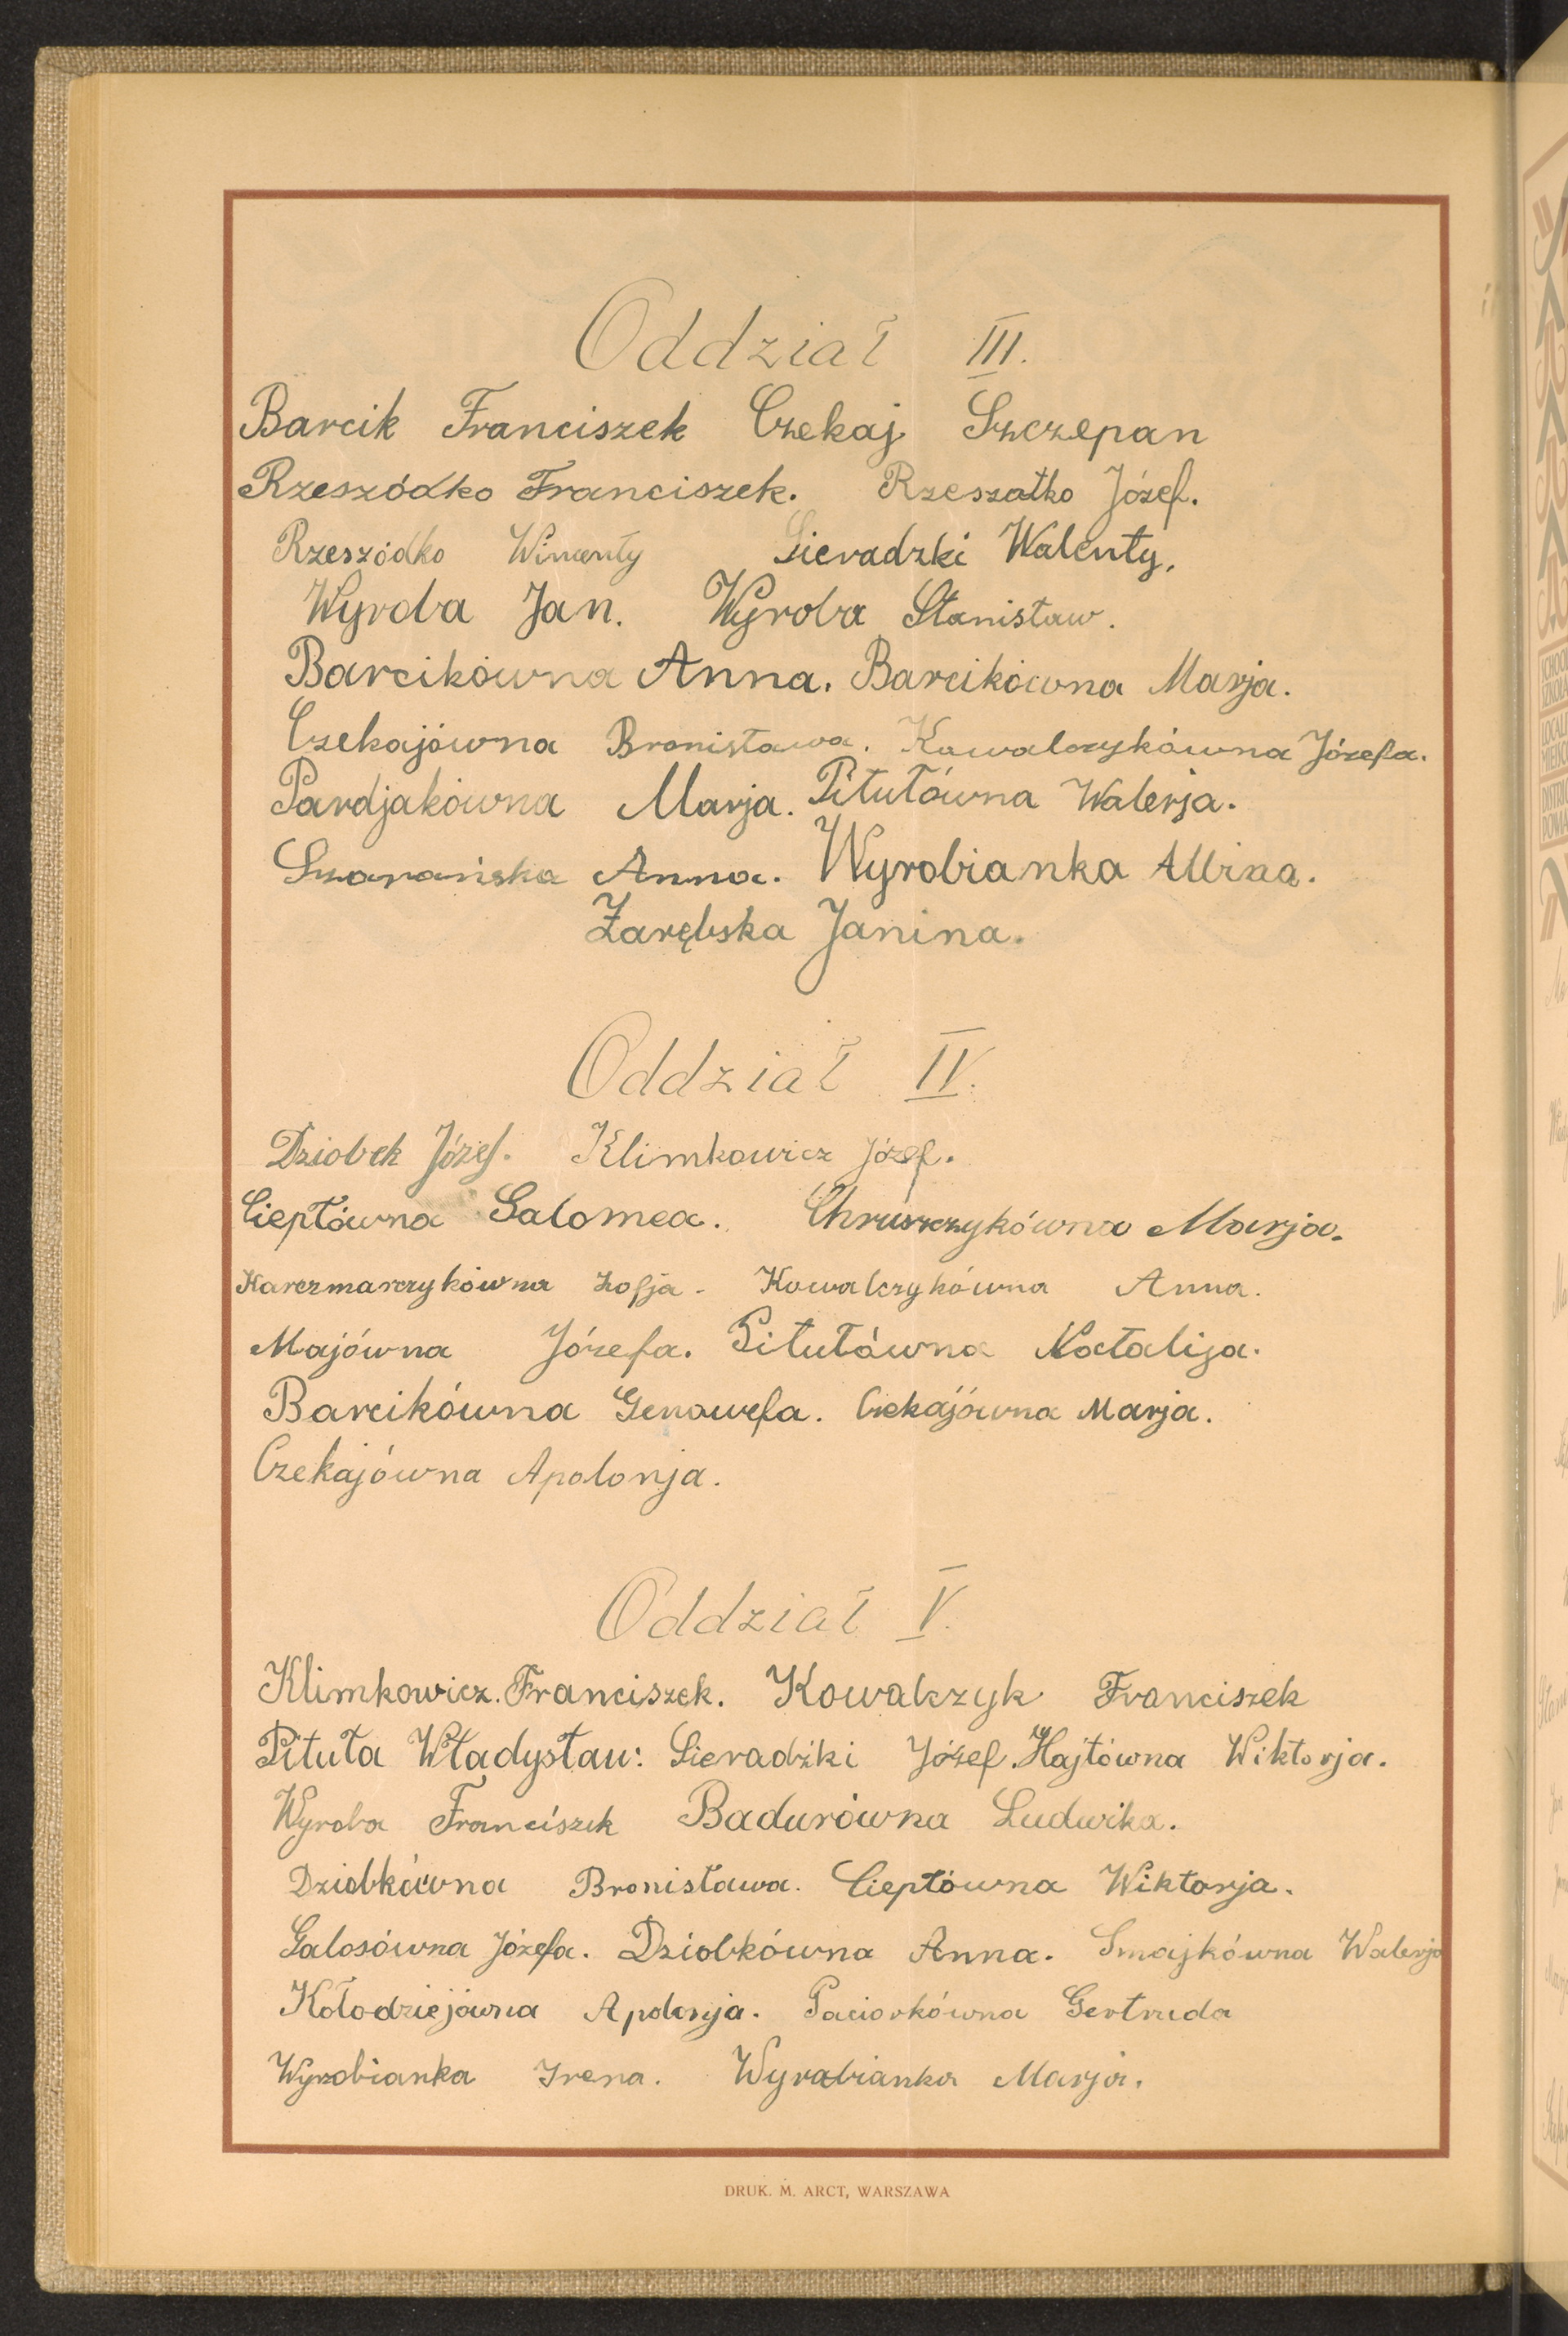 Oddział III.
Barcik Franciszek Czekaj Szczepan
Rzeszódko Franciszek. Rzeszotko Józef.
Rzeszódko Wincenty Sieradzki Walenty.
Wyroba Jan. Wyroba Stanisław.
Barcikówna Anna. Barcikówna Marja.
Czekajówna Bronisława. Kowalczykówna Józefa.
Pardjakówna Marja. Pitułówna Walerja.
Anna. Wyrobianka Albina.
Zarębska Janina.
Oddział IV.
Dziobek Józef. Klimkowicz Józef.
Ciepłówna Salomea. Chruszczykówna Marja.
Karczmarczykówna Zofja. Kowalczykówna Anna.
Majówna Józefa. Pitułówna Natalija.
Barcikówna Genowefa. Czekajówna Marja.
Czekajówna Apolonja.
Oddział V.
Klimkowicz. Franciszek. Kowalczyk Franciszek
Pituła Władysław. Sieradzki Józef. Hajtówna Wiktorja.
Wyroba Franciszek Badurówna Ludwika.
Dziobkówna Bronisława. Ciepłówna Wiktorja.
Galosówna Józefa. Dziobkówna Anna. Smajkówna Walerja
Kołodziejówna Apolonja. Paciorkówna Gertruda
Wyrobianka Irena. Wyrobianka Marja.
DRUK. M. ARCT, WARSZAWA